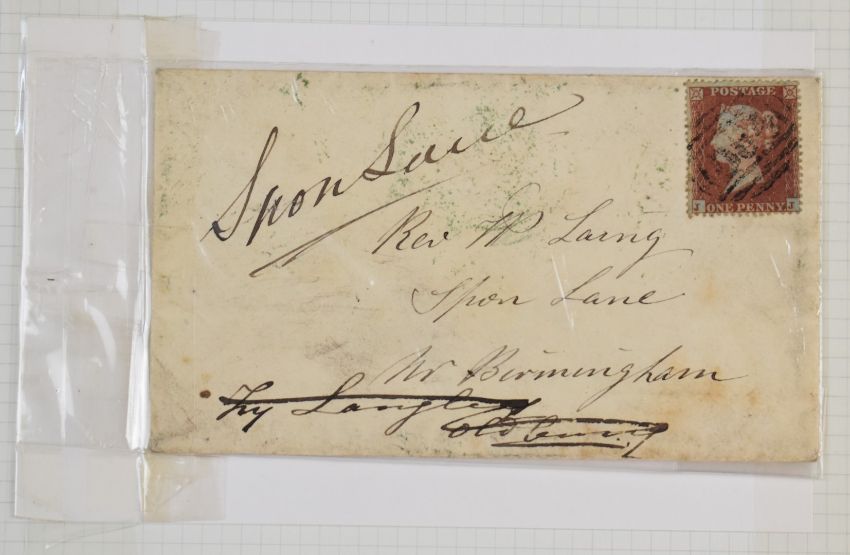 POSTAGE
J J
ONE PENNY
Spon Lane
Rev W Laing
Spon Lane
Nr Birmingham
Try Langley
Oldbury